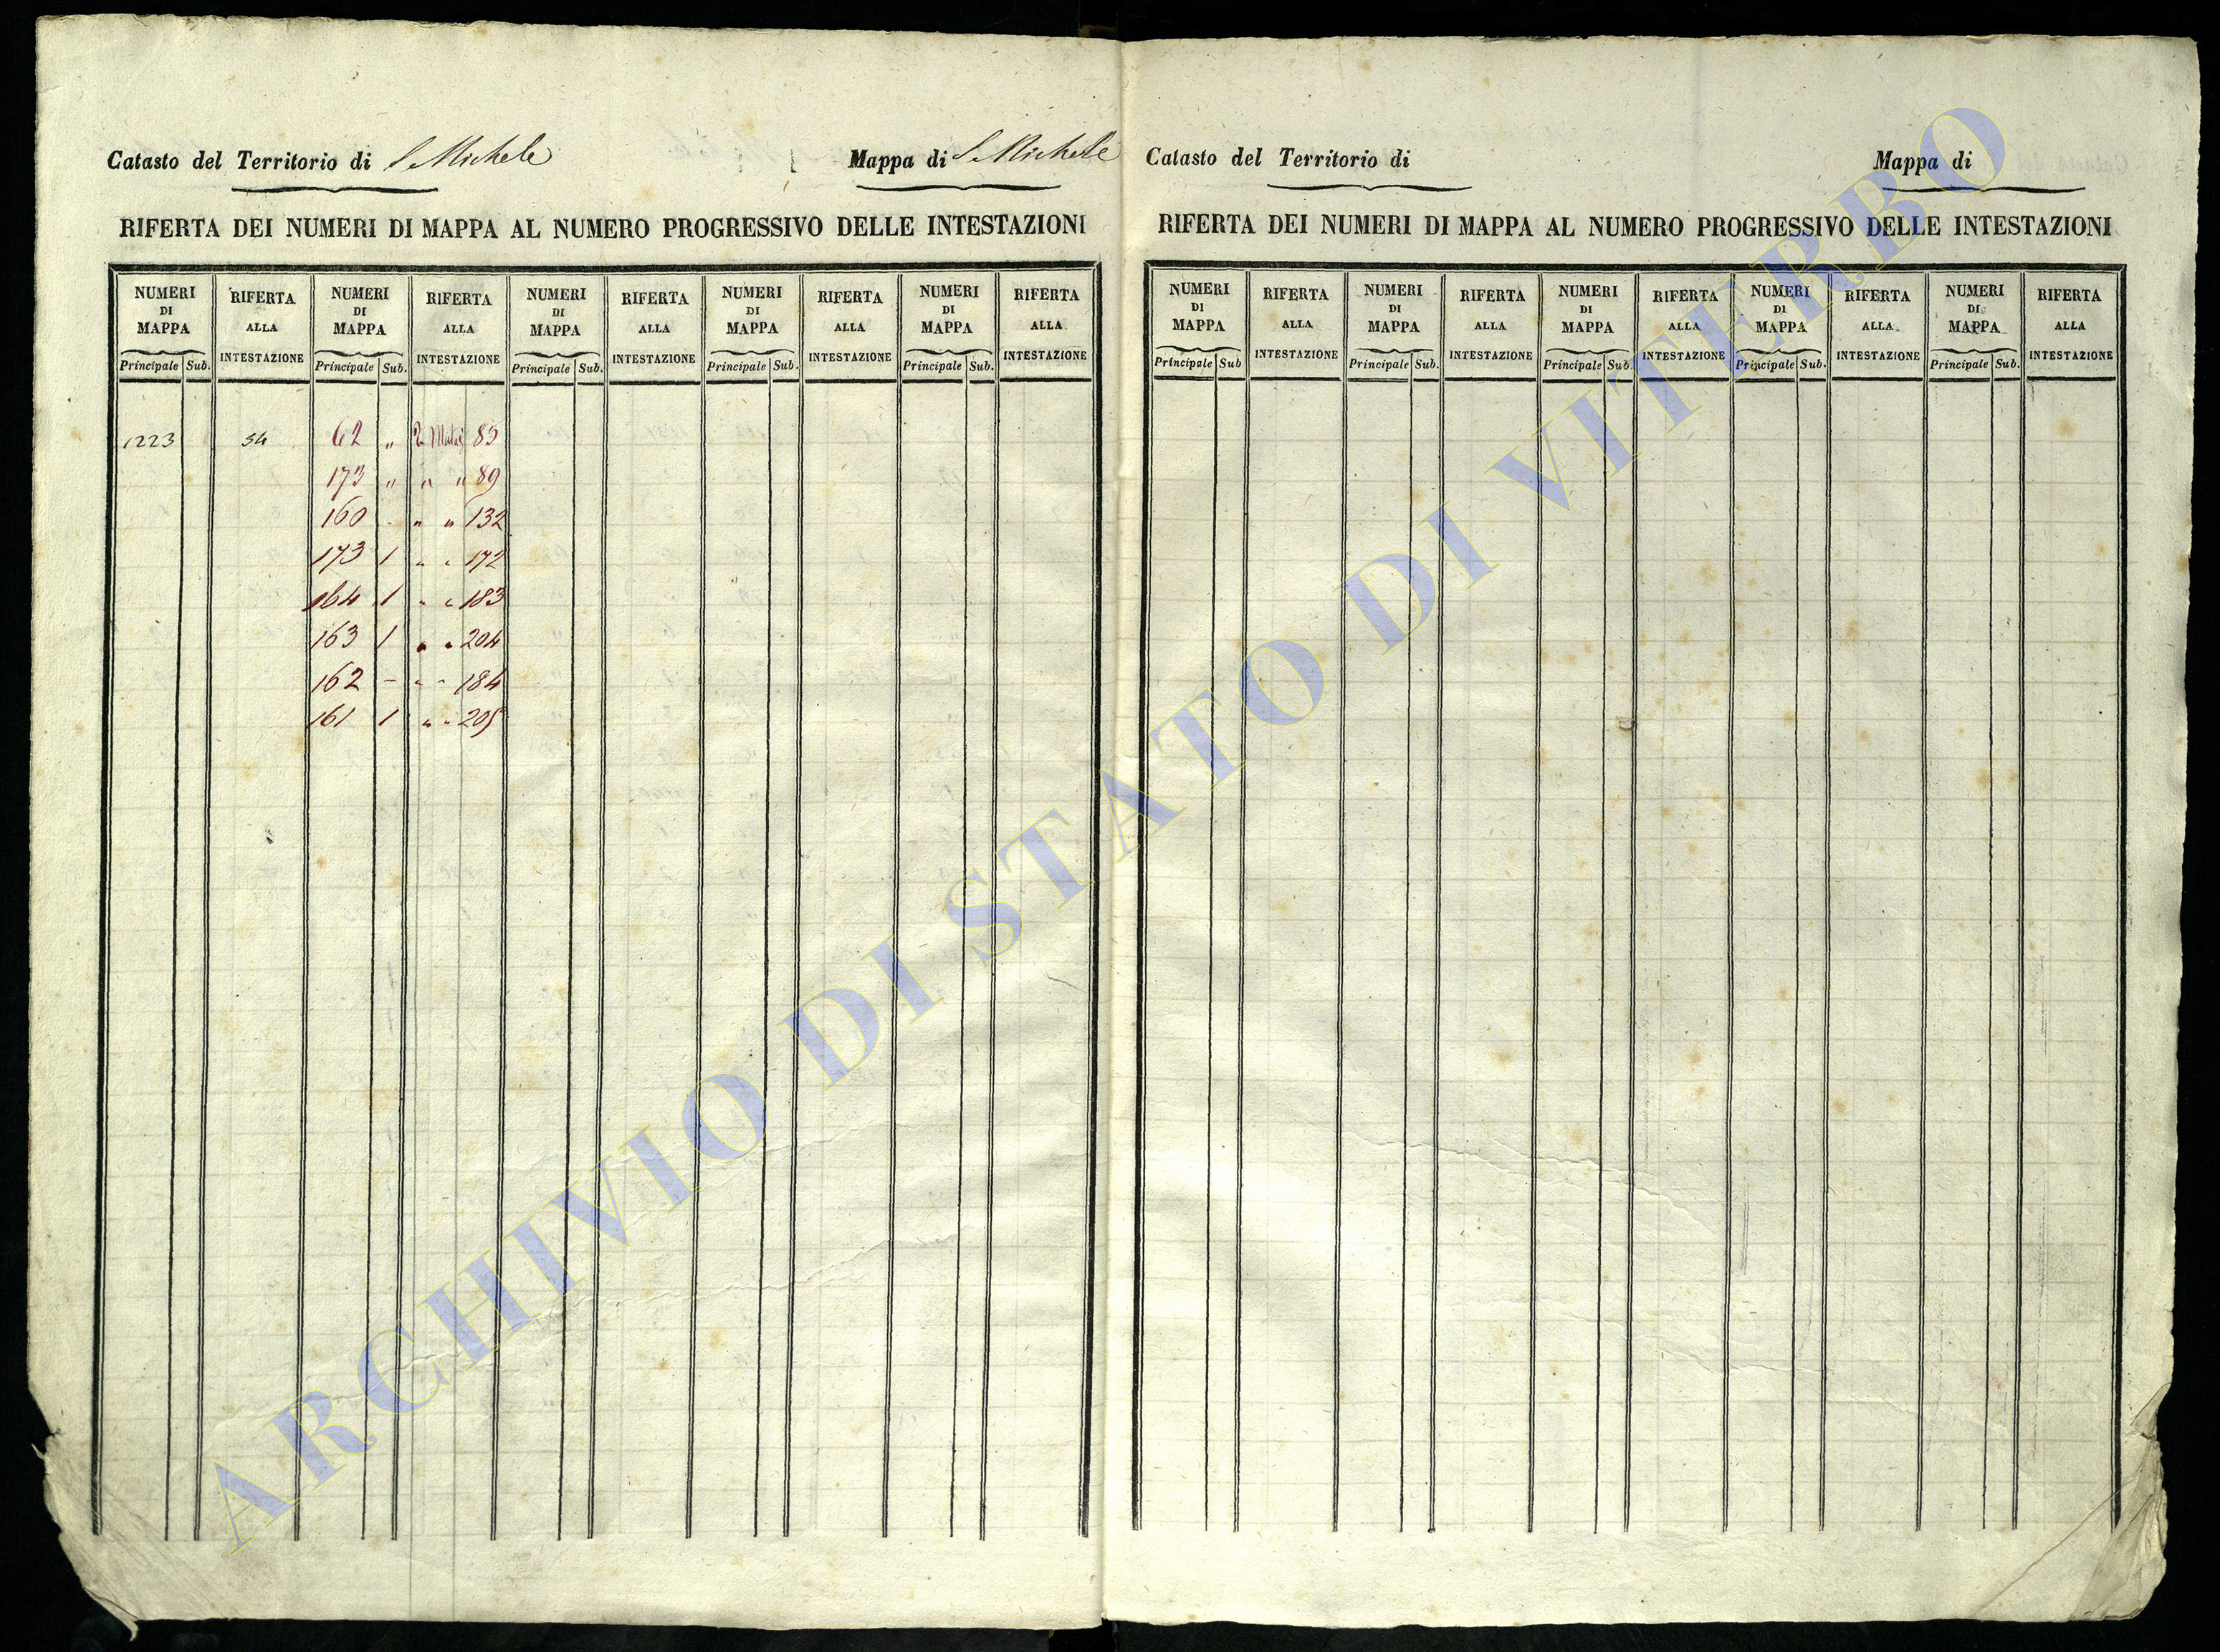 Catasto del Territorio di S Michele Mappa di S Michele
RIFERTA DEI NUMERI DI MAPPA AL NUMERO PROGRESSIVO DELLE INTESTAZIONI
NUMERI DI MAPPA RIFERTA ALLA INTESTAZIONE NUMERI DI MAPPA RIFERTA ALLA INTESTAZIONE NUMERI DI MAPPA RIFERTA ALLA INTESTAZIONE NUMERI DI MAPPA RIFERTA ALLA INTESTAZIONE NUMERI DI MAPPA RIFERTA ALLA INTESTAZIONE
Principale Sub. Principale Sub. Principale Sub. Principale Sub. Principale Sub.
1223 54 62 " 85
173 " " " 89
160 - " " 132
173 1 " " 172
164 1 " " 183
163 1 " " 204
162 – " " 184
161 1 " " 205
Catasto del Territorio di Mappa di
RIFERTA DEI NUMERI DI MAPPA AL NUMERO PROGRESSIVO DELLE INTESTAZIONI
NUMERI DI MAPPA RIFERTA ALLA INTESTAZIONE NUMERI DI MAPPA RIFERTA ALLA INTESTAZIONE NUMERI DI MAPPA RIFERTA ALLA INTESTAZIONE NUMERI DI MAPPA RIFERTA ALLA INTESTAZIONE NUMERI DI MAPPA RIFERTA ALLA INTESTAZIONE
Principale Sub Principale Sub. Principale Sub. Principale Sub. Principale Sub.
ARCHIVIO DI STATO DI VITERBO